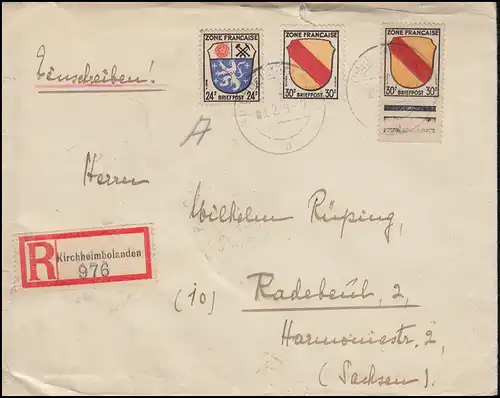 Einschreiben!
ZONE FRANÇAISE
24 Pf 24 Pf
BRIEFPOST
ZONE FRANÇAISE
30 Pf 30 Pf
BRIEFPOST
ZONE FRANÇAISE
30 Pf 30 Pf
BRIEFPOST
d
A
Herrn
Wilhelm Rüping,
R Kirchheimbolanden
976
(10) Radebeul, 2,
Harmoniestr. 2
(Sachsen).